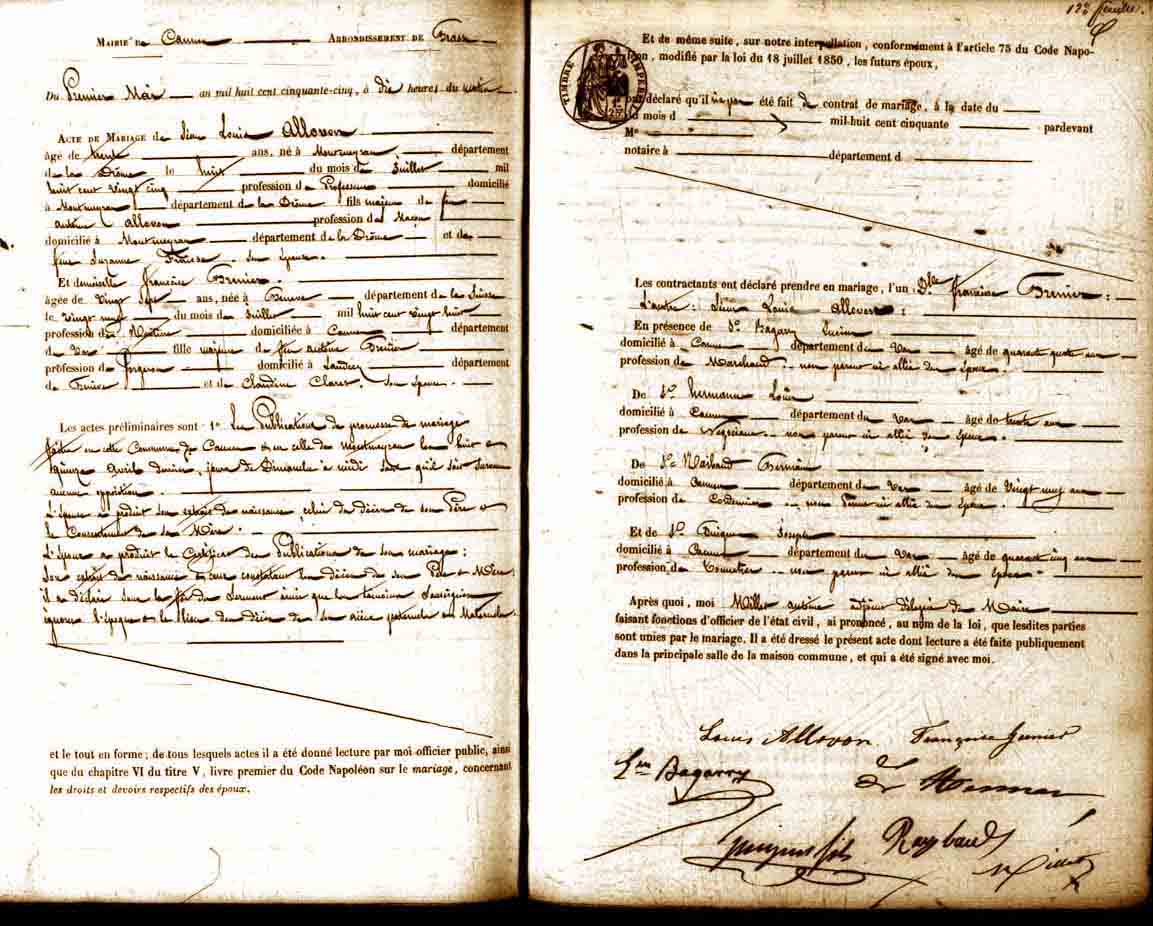 Mairie de Cannes Arrondissement de Grasse
Du Premier Mai an mil huit cent cinquante-cinq, à dix heures du matin
Acte de Mariage de Jean Louis Allovon
âgé de trente ans, né à Montmeyran département
de la Drôme le huit du mois de Juillet mil
huit cent vingt cinq profession de Professeur domicilié
à Montmeyran département de la Drôme fils majeur de feu
antoine Allovon profession de Maçon
domicilié à Montmeyran département de la Drôme et de
feue Suzanne son épouse.
Et demoiselle françoise Grenier
âgée de vingt sept ans, née à Genève département de la Suisse
le vingt neuf du mois de Juillet mil huit cent vingt huit
profession de domiciliée à Cannes département
du Var fille majeure de feu antoine Grenier
profession de forgeron domicilié à Landecy département
de Suisse et de Claudine Claret son épouse.
Les actes préliminaires sont : 1° Les Publications de promesse de mariage
faites en cette Commune de Cannes & en celle de Montmeyran les huit &
quinze Avril dernier, jours de Dimanche à midi sans qu'il soit survenu
aucune opposition.
L'épouse a produit son extrait de naissance, celui de décès de son Père &
le Consentement de sa Mère.
L'Epoux a produit le Certificat des Publications de son mariage ;
Son extrait de naissance & ceux constatant les décès de ses Père & Mère ;
il a déclaré sous la foi du Serment ainsi que les témoins Soussignés
ignorer l'époque & le lieu des décès de ses aïeux paternels & Maternels.
et le tout en forme ; de tous lesquels actes il a été donné lecture par moi officier public, ainsi
que du chapitre VI du titre V, livre premier du Code Napoléon sur le mariage, concernant
les droits et devoirs respectifs des époux.
feuillet.
TIMBRE IMPERIAL
Et de même suite, sur notre interpellation, conformément à l'article 75 du Code Napo-
léon, modifié par la loi du 18 juillet 1850, les futurs époux,
ont déclaré qu'il n'a pas été fait de contrat de mariage, à la date du
du mois d mil-huit cent cinquante pardevant
Me
notaire à département d
Les contractants ont déclaré prendre en mariage, l'un Dlle françoise Grenier :
L'autre : Jean Louis Allovon :
En présence de Sr Bagarry Lucien
domicilié à Cannes département du Var âgé de quarante quatre ans
profession de Marchand non parent ni allié des époux.
De Sr hermann Louis
domicilié à Cannes département du Var âgé de trente ans
profession de Négociant non parent ni allié des époux.
De Sr Raibaud Germain
domicilié à Cannes département du Var âgé de Vingt neuf ans
profession de Cordonnier non parent ni allié des époux.
Et de Sr Guigue Joseph
domicilié à Cannes département du Var âgé de quarante cinq ans
profession de non parent ni allié des époux.
Après quoi, moi Millet antoine adjoint délégué du Maire
faisant fonctions d'officier de l'état civil, ai prononcé, au nom de la loi, que lesdites parties
sont unies par le mariage. Il a été dressé le présent acte dont lecture a été faite publiquement
dans la principale salle de la maison commune, et qui a été signé avec moi.
Louis Allovon Françoise Grenier
Bagarry
Raybaud